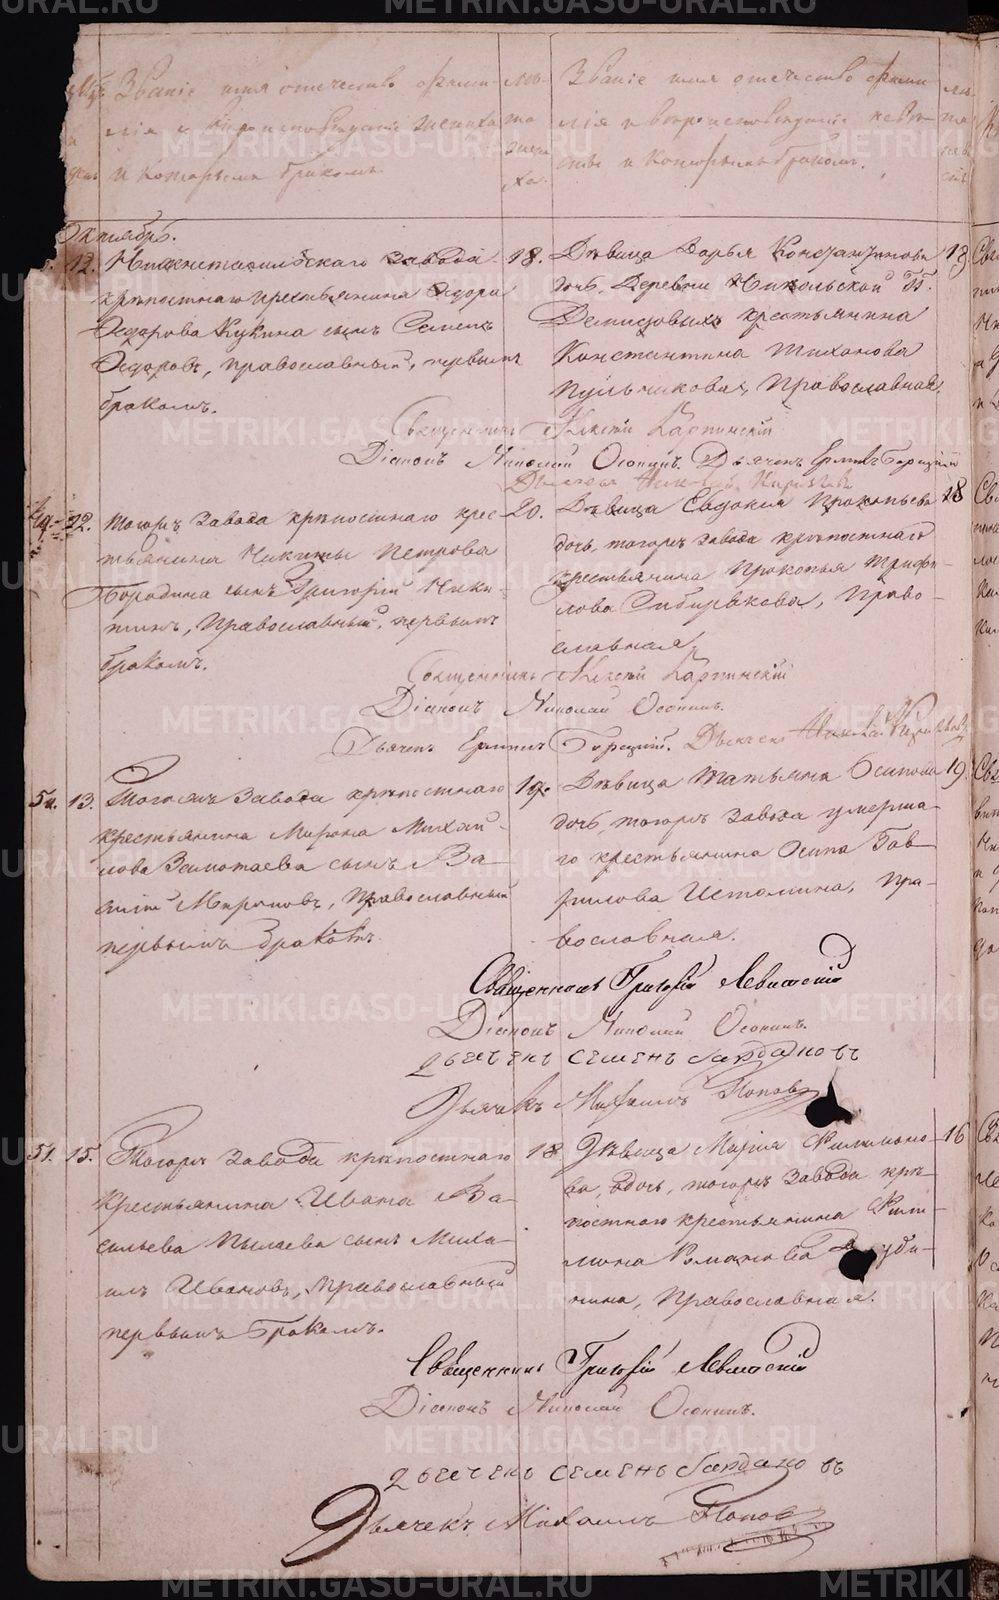 Званіе имя отечество фами-
лія и вероисповеданіе жениха
и которымъ бракомъ.
лѣ-
та
жени
ха.
Званіе имя отечество фами
лія и вероисповеданіе невѣ
сты и которымъ бракомъ.
Октябрь.
12. Нижнетагильскаго завода
крѣпостнаго крестьянина Ѳедора
Ѳедорова Кукина сынъ Семенъ
Ѳедоровъ, православный, первымъ
бракомъ.
18.
Дѣвица Дарья Константинова
дочь, Деревни Никольской ГГ.
Демидовыхъ крестьянина
Константина Тиханова
Пульникова, Православная.
18
Священникъ Алексій Карпинскій
Діаконъ Николай Осонинъ. Дьячекъ Ермилъ Борецкій
49. 22. Тогожъ завода крѣпостнаго крес-
тьянина Никиты Петрова
Бородина сынъ Григорій Ники-
тинъ, Православный, первымъ
бракомъ.
20.
Дѣвица Евдокия Прокопьева
дочь, тогожъ завода крѣпостнаго
крестьянина Прокопья Трифи-
лова Сибирякова, Право-
славная,
18
Священникъ Алексій Карпинскій
Діаконъ Николай Осонинъ.
Дьячекъ Ермилъ Борецкій.
50. 13. Тогожъ завода крѣпостнаго
крестьянина Мирона Михай-
лова Замотаева сынъ Ва-
силій Мироновъ, Православный
первымъ бракомъ.
19.
Дѣвица Татьяна Осипова
дочь, тогожъ завода умерша-
го крестьянина Осипа Гав-
рилова Истомина, Пра-
вославная.
19.
Священникъ Григорій Левитскій
Діаконъ Николай Осонинъ.
дьечекъ семенъ
Дьячекъ Михаилъ Поповъ
51. 15. Тогожъ завода крѣпостнаго
крестьянина Ивана Ва-
сильева Пылаева сынъ Миха-
илъ Ивановъ, Православный
первымъ бракомъ.
18
Дѣвица Марія Филимоно-
ва, дочь, тогожъ завода крѣ-
постнаго крестьянина Фили-
мона Романова
нина, Православная.
16
Священникъ Григорій Левитскій
Діаконъ Николай Осонинъ.
дьечекъ семенъ
Дьячекъ Михаилъ Поповъ
METRIKI.GASO-URAL.RU